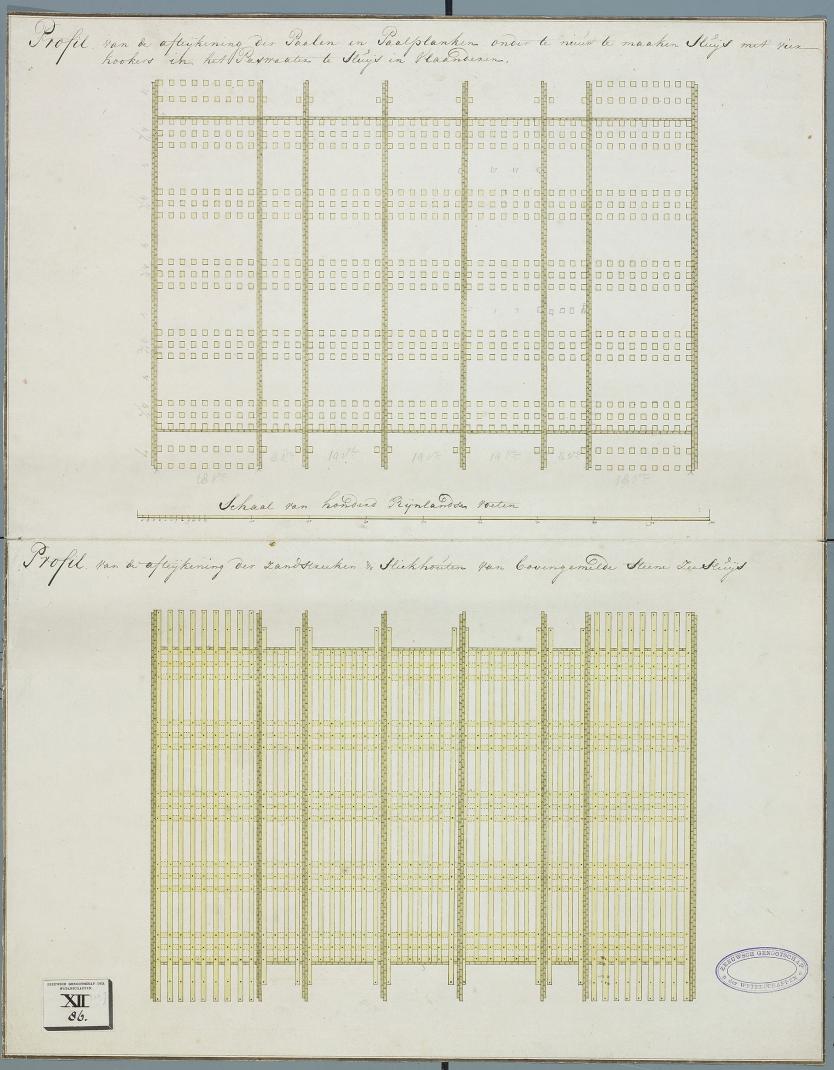 Profil van de afteijkening der Paalen en Paalplanken onder te nieuw te maaken Sluijs met vier
kookers in het Paswaater te Sluijs in Vlaanderen.
18 vt 8 vt 19 vt 19 vt 19 vt 8 vt 18 vt
Schaal van honderd Rijnlandse voeten
Profil van de afteijkening der zandstreeken & Slickhouten van bovengemelde Steene Zee Sluijs
ZEEUWSCH GENOOTSCHAP DER
WETENSCHAPPEN
XII
86.
ZEEUWSCH GENOOTSCHAP
der WETENSCHAPPEN